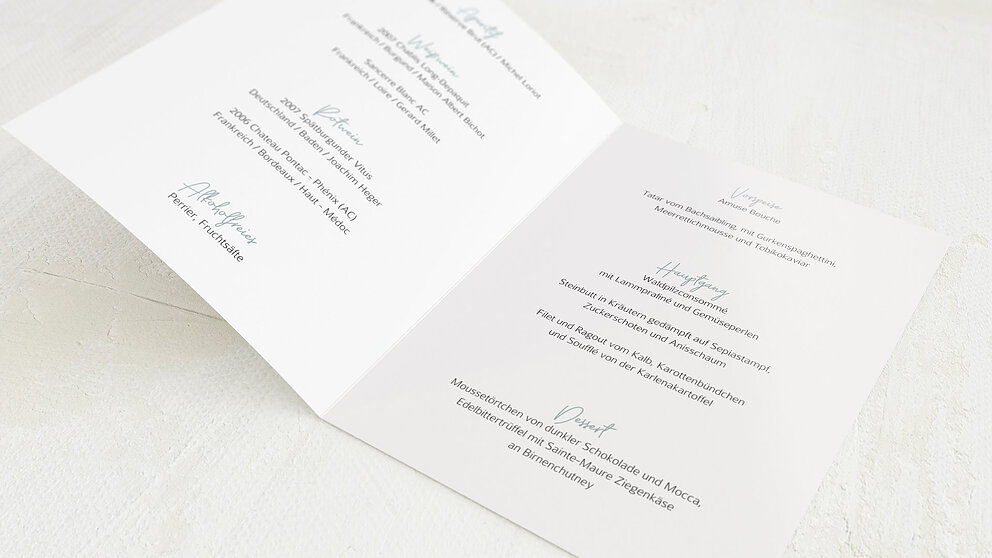 Aperitif
/ Reserve Brut (AC) / Michel Loriot
Weißwein
2007 Chablis Long-Depaquit
Frankreich / Burgund / Maison Albert Bichot
Sancerre Blanc AC
Frankreich / Loire / Gerard Millet
Rotwein
2007 Spätburgunder Vitus
Deutschland / Baden / Joachim Heger
2006 Chateau Pontac - Phénix (AC)
Frankreich / Bordeaux / Haut - Médoc
Alkoholfreies
Perrier, Fruchtsäfte
Vorspeise
Amuse Bouche
Tatar vom Bachsaibling, mit Gurkenspaghettini,
Meerrettichmousse und Tobikokaviar
Hauptgang
Waldpilzconsommé
mit Lammpraliné und Gemüseperlen
Steinbutt in Kräutern gedämpft auf Sepiastampf,
Zuckerschoten und Anisschaum
Filet und Ragout vom Kalb, Karottenbündchen
und Soufflé von der Karlenakartoffel
Dessert
Moussetörtchen von dunkler Schokolade und Mocca,
Edelbittertrüffel mit Sainte-Maure Ziegenkäse
an Birnenchutney